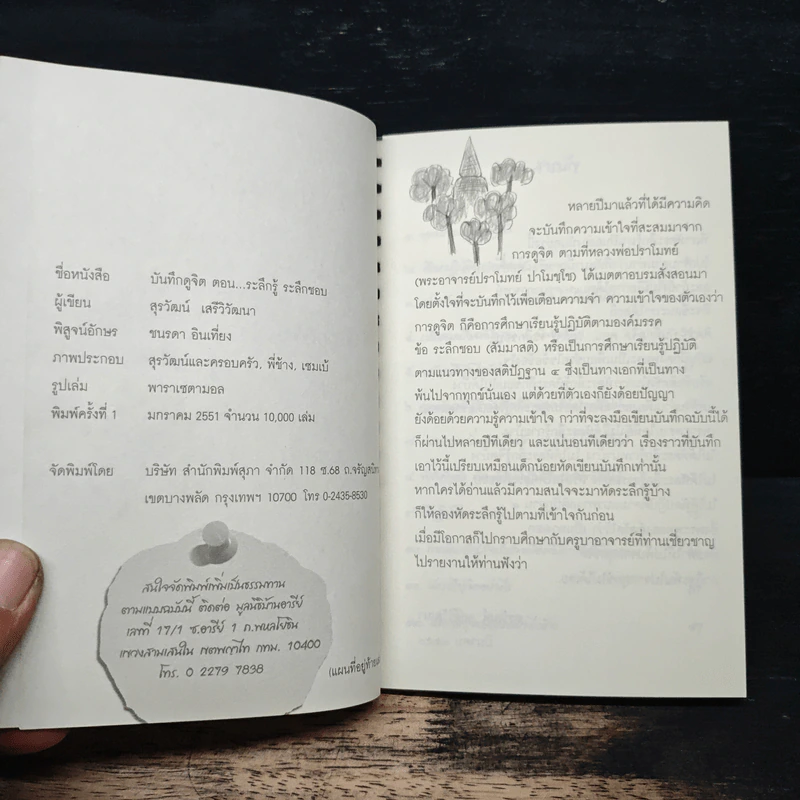 ชื่อหนังสือ บันทึกดูจิต ตอน...ระลึกรู้ ระลึกชอบ
ผู้เขียน สุรวัฒน์ เสรีวิวัฒนา
พิสูจน์อักษร ชนรดา อินเที่ยง
ภาพประกอบ สุรวัฒน์และครอบครัว, พี่ช้าง, เซมเบ้
รูปเล่ม พาราเซตามอล
พิมพ์ครั้งที่ 1 มกราคม 2551 จำนวน 10,000 เล่ม
จัดพิมพ์โดย บริษัท สำนักพิมพ์สุภา จำกัด 118 ซ.68 ถ.จรัญสนิท
เขตบางพลัด กรุงเทพฯ 10700 โทร 0-2435-8530
สนใจจัดพิมพ์เพิ่มเป็นธรรมทาน
ตามแบบฉบับนี้ ติดต่อ มูลนิธิบ้านอารีย์
เลขที่ 17/1 ซ.อารีย์ 1 ถ.พหลโยธิน
แขวงสามเสนใน เขตพญาไท กทม. 10400
โทร. 0 2279 7838
(แผนที่อยู่ท้าย
หลายปีมาแล้วที่ได้มีความคิด
จะบันทึกความเข้าใจที่สะสมมาจาก
การดูจิต ตามที่หลวงพ่อปราโมทย์
(พระอาจารย์ปราโมทย์ ปาโมชฺโช) ได้เมตตาอบรมสั่งสอนมา
โดยตั้งใจที่จะบันทึกไว้เพื่อเตือนความจำ ความเข้าใจของตัวเองว่า
การดูจิต ก็คือการศึกษาเรียนรู้ปฏิบัติตามองค์มรรค
ข้อ ระลึกชอบ (สัมมาสติ) หรือเป็นการศึกษาเรียนรู้ปฏิบัติ
ตามแนวทางของสติปัฏฐาน ๔ ซึ่งเป็นทางเอกที่เป็นทาง
พ้นไปจากทุกข์นั่นเอง แต่ด้วยที่ตัวเองก็ยังด้อยปัญญา
ยังด้อยด้วยความรู้ความเข้าใจ กว่าที่จะลงมือเขียนบันทึกฉบับนี้ได้
ก็ผ่านไปหลายปีทีเดียว และแน่นอนทีเดียวว่า เรื่องราวที่บันทึก
เอาไว้นี้เปรียบเหมือนเด็กน้อยหัดเขียนบันทึกเท่านั้น
หากใครได้อ่านแล้วมีความสนใจจะมาหัดระลึกรู้บ้าง
ก็ให้ลองหัดระลึกรู้ไปตามที่เข้าใจกันก่อน
เมื่อมีโอกาสก็ไปกราบศึกษากับครูบาอาจารย์ที่ท่านเชี่ยวชาญ
ไปรายงานให้ท่านฟังว่า